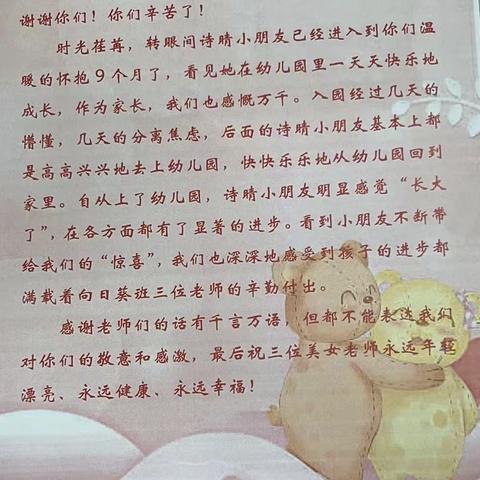 谢谢你们！你们辛苦了！
时光荏苒，转眼间诗晴小朋友已经进入到你们温
暖的怀抱9个月了，看见她在幼儿园里一天天快乐地
成长，作为家长，我们也感慨万千。入园经过几天的
懵懂，几天的分离焦虑，后面的诗晴小朋友基本上都
是高高兴兴地去上幼儿园，快快乐乐地从幼儿园回到
家里。自从上了幼儿园，诗晴小朋友明显感觉“长大
了”，在各方面都有了显著的进步。看到小朋友不断带
给我们的“惊喜”，我们也深深地感受到孩子的进步都
满载着向日葵班三位老师的辛勤付出。
感谢老师们的话有千言万语，但都不能表达我们
对你们的敬意和感激，最后祝三位美女老师永远年轻
漂亮、永远健康、永远幸福！